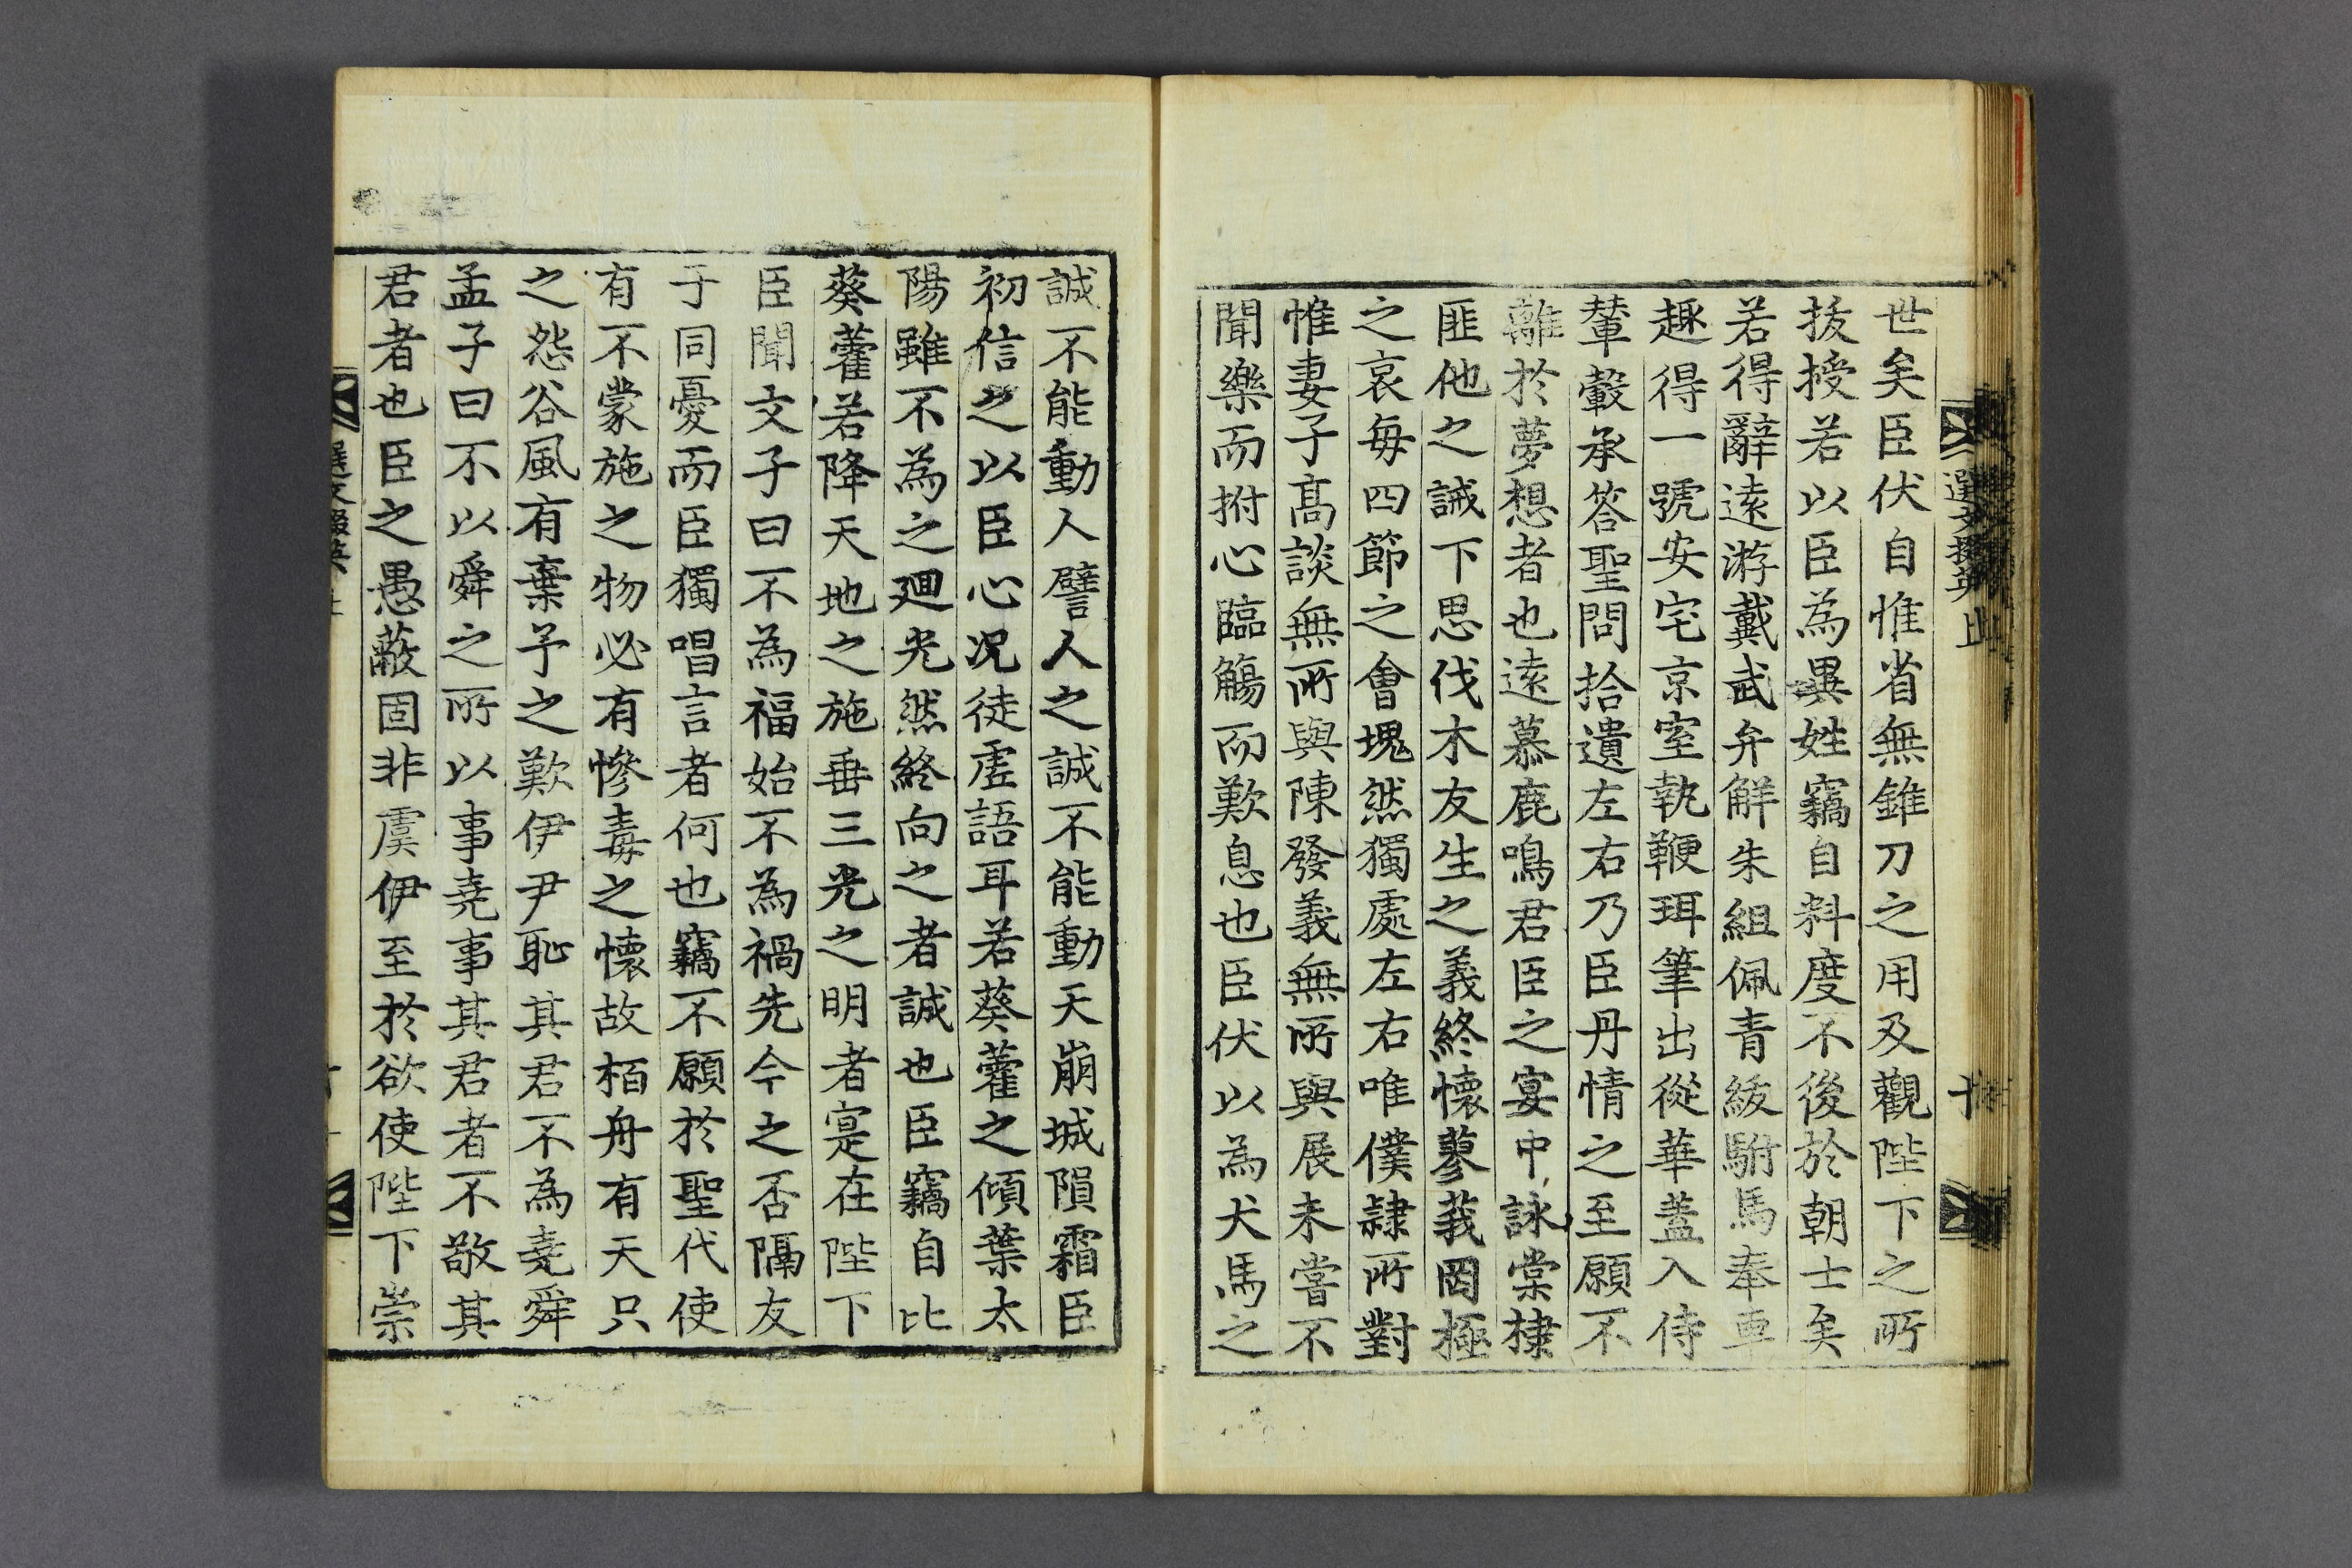 世矣臣伏自惟省無錐刀之用及觀陛下之所
拔授若以臣為異姓竊自料度不後於朝士矣
若得辭逺游戴武弁解朱組佩青紱駙馬奉車
趣得一號安宅京室執鞭珥筆出從華蓋入侍
輦轂承答聖問拾遺左右乃臣丹情之至願不
離於夢想者也逺慕鹿鳴君臣之宴中詠棠棣
匪他之誡下思伐木友生之義終懷蓼莪罔極
之哀每四節之會塊然獨處左右唯僕隷所對
惟妻子高談無所與陳發義無所與展未嘗不
聞樂而拊心臨觴而歎息也臣伏以為犬馬之
誠不能動人譬人之誠不能動天崩城隕霜臣
初信之以臣心況徒虛語耳若葵藿之傾葉太
陽雖不為之迴光然終向之者誠也臣竊自比
葵藿若降天地之施垂三光之明者寔在陛下
臣聞文子曰不為福始不為禍先今之否隔友
于同憂而臣獨唱言者何也竊不願於聖代使
有不蒙施之物必有慘毒之懷故栢舟有天只
之怨谷風有棄予之歎伊尹恥其君不為堯舜
孟子曰不以舜之所以事堯事其君者不敬其
君者也臣之愚蔽固非虞伊至於欲使陛下崇
選文掇英
十
選文掇英